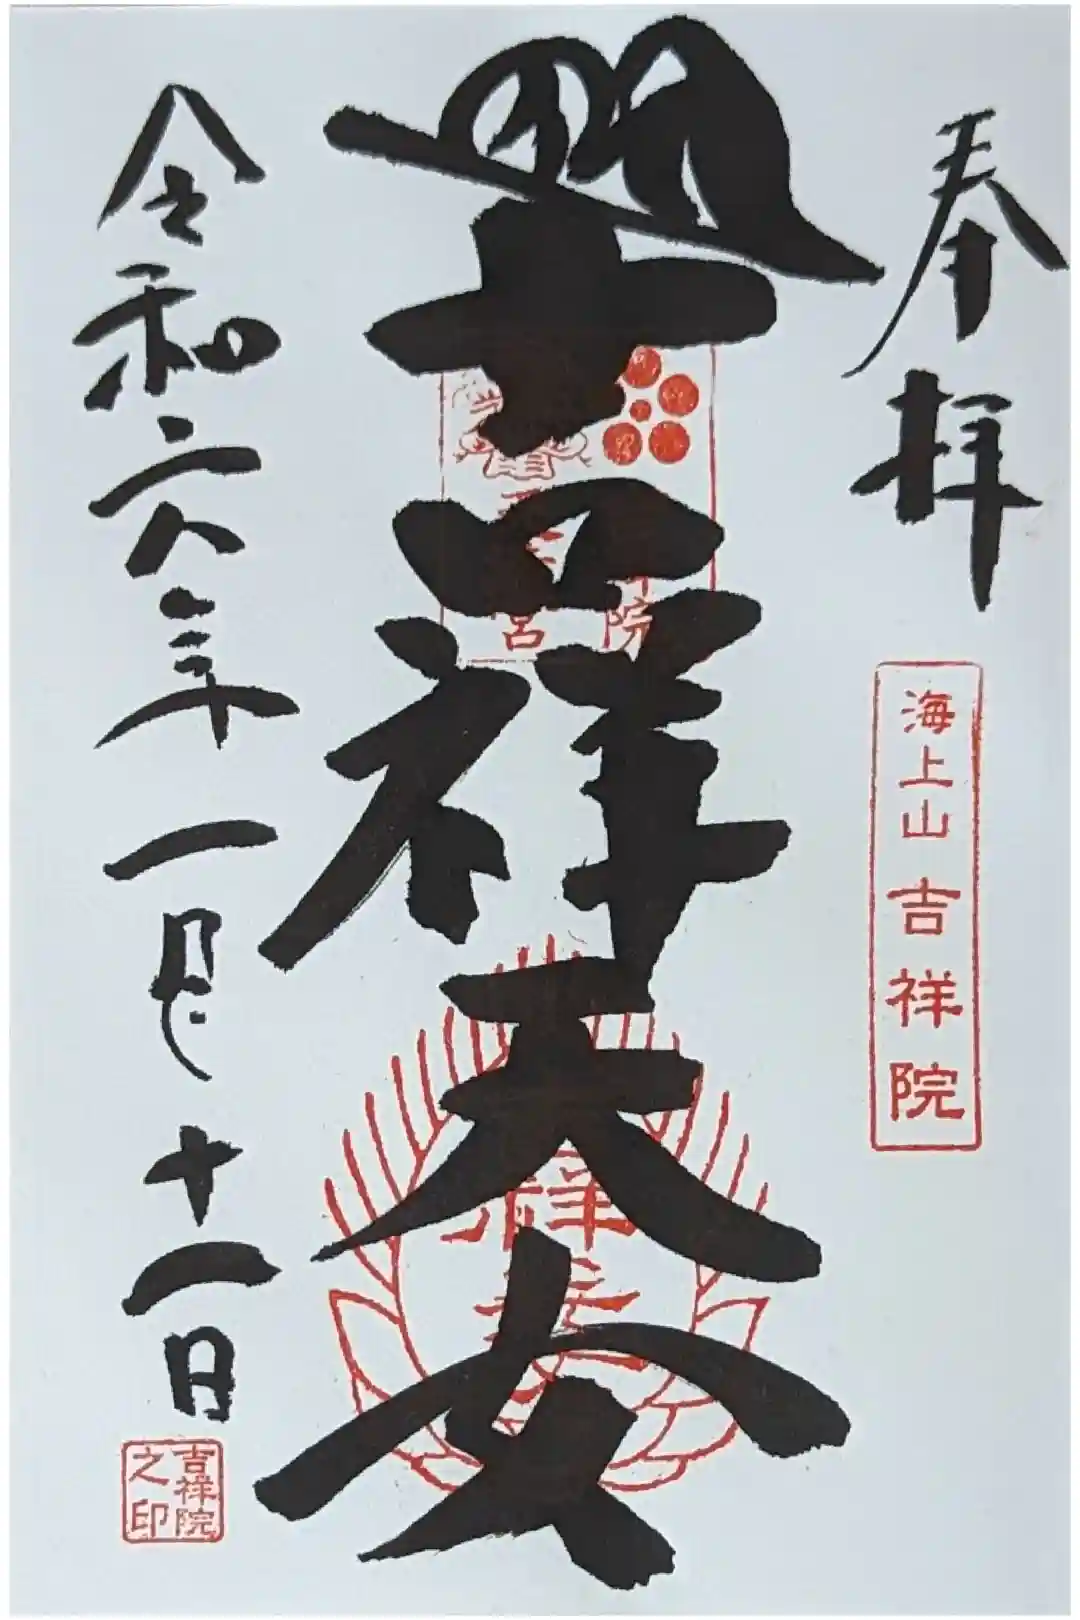 奉拝
海上山 吉祥院
吉祥天女
令和六年一月二十一日
吉祥院
之印